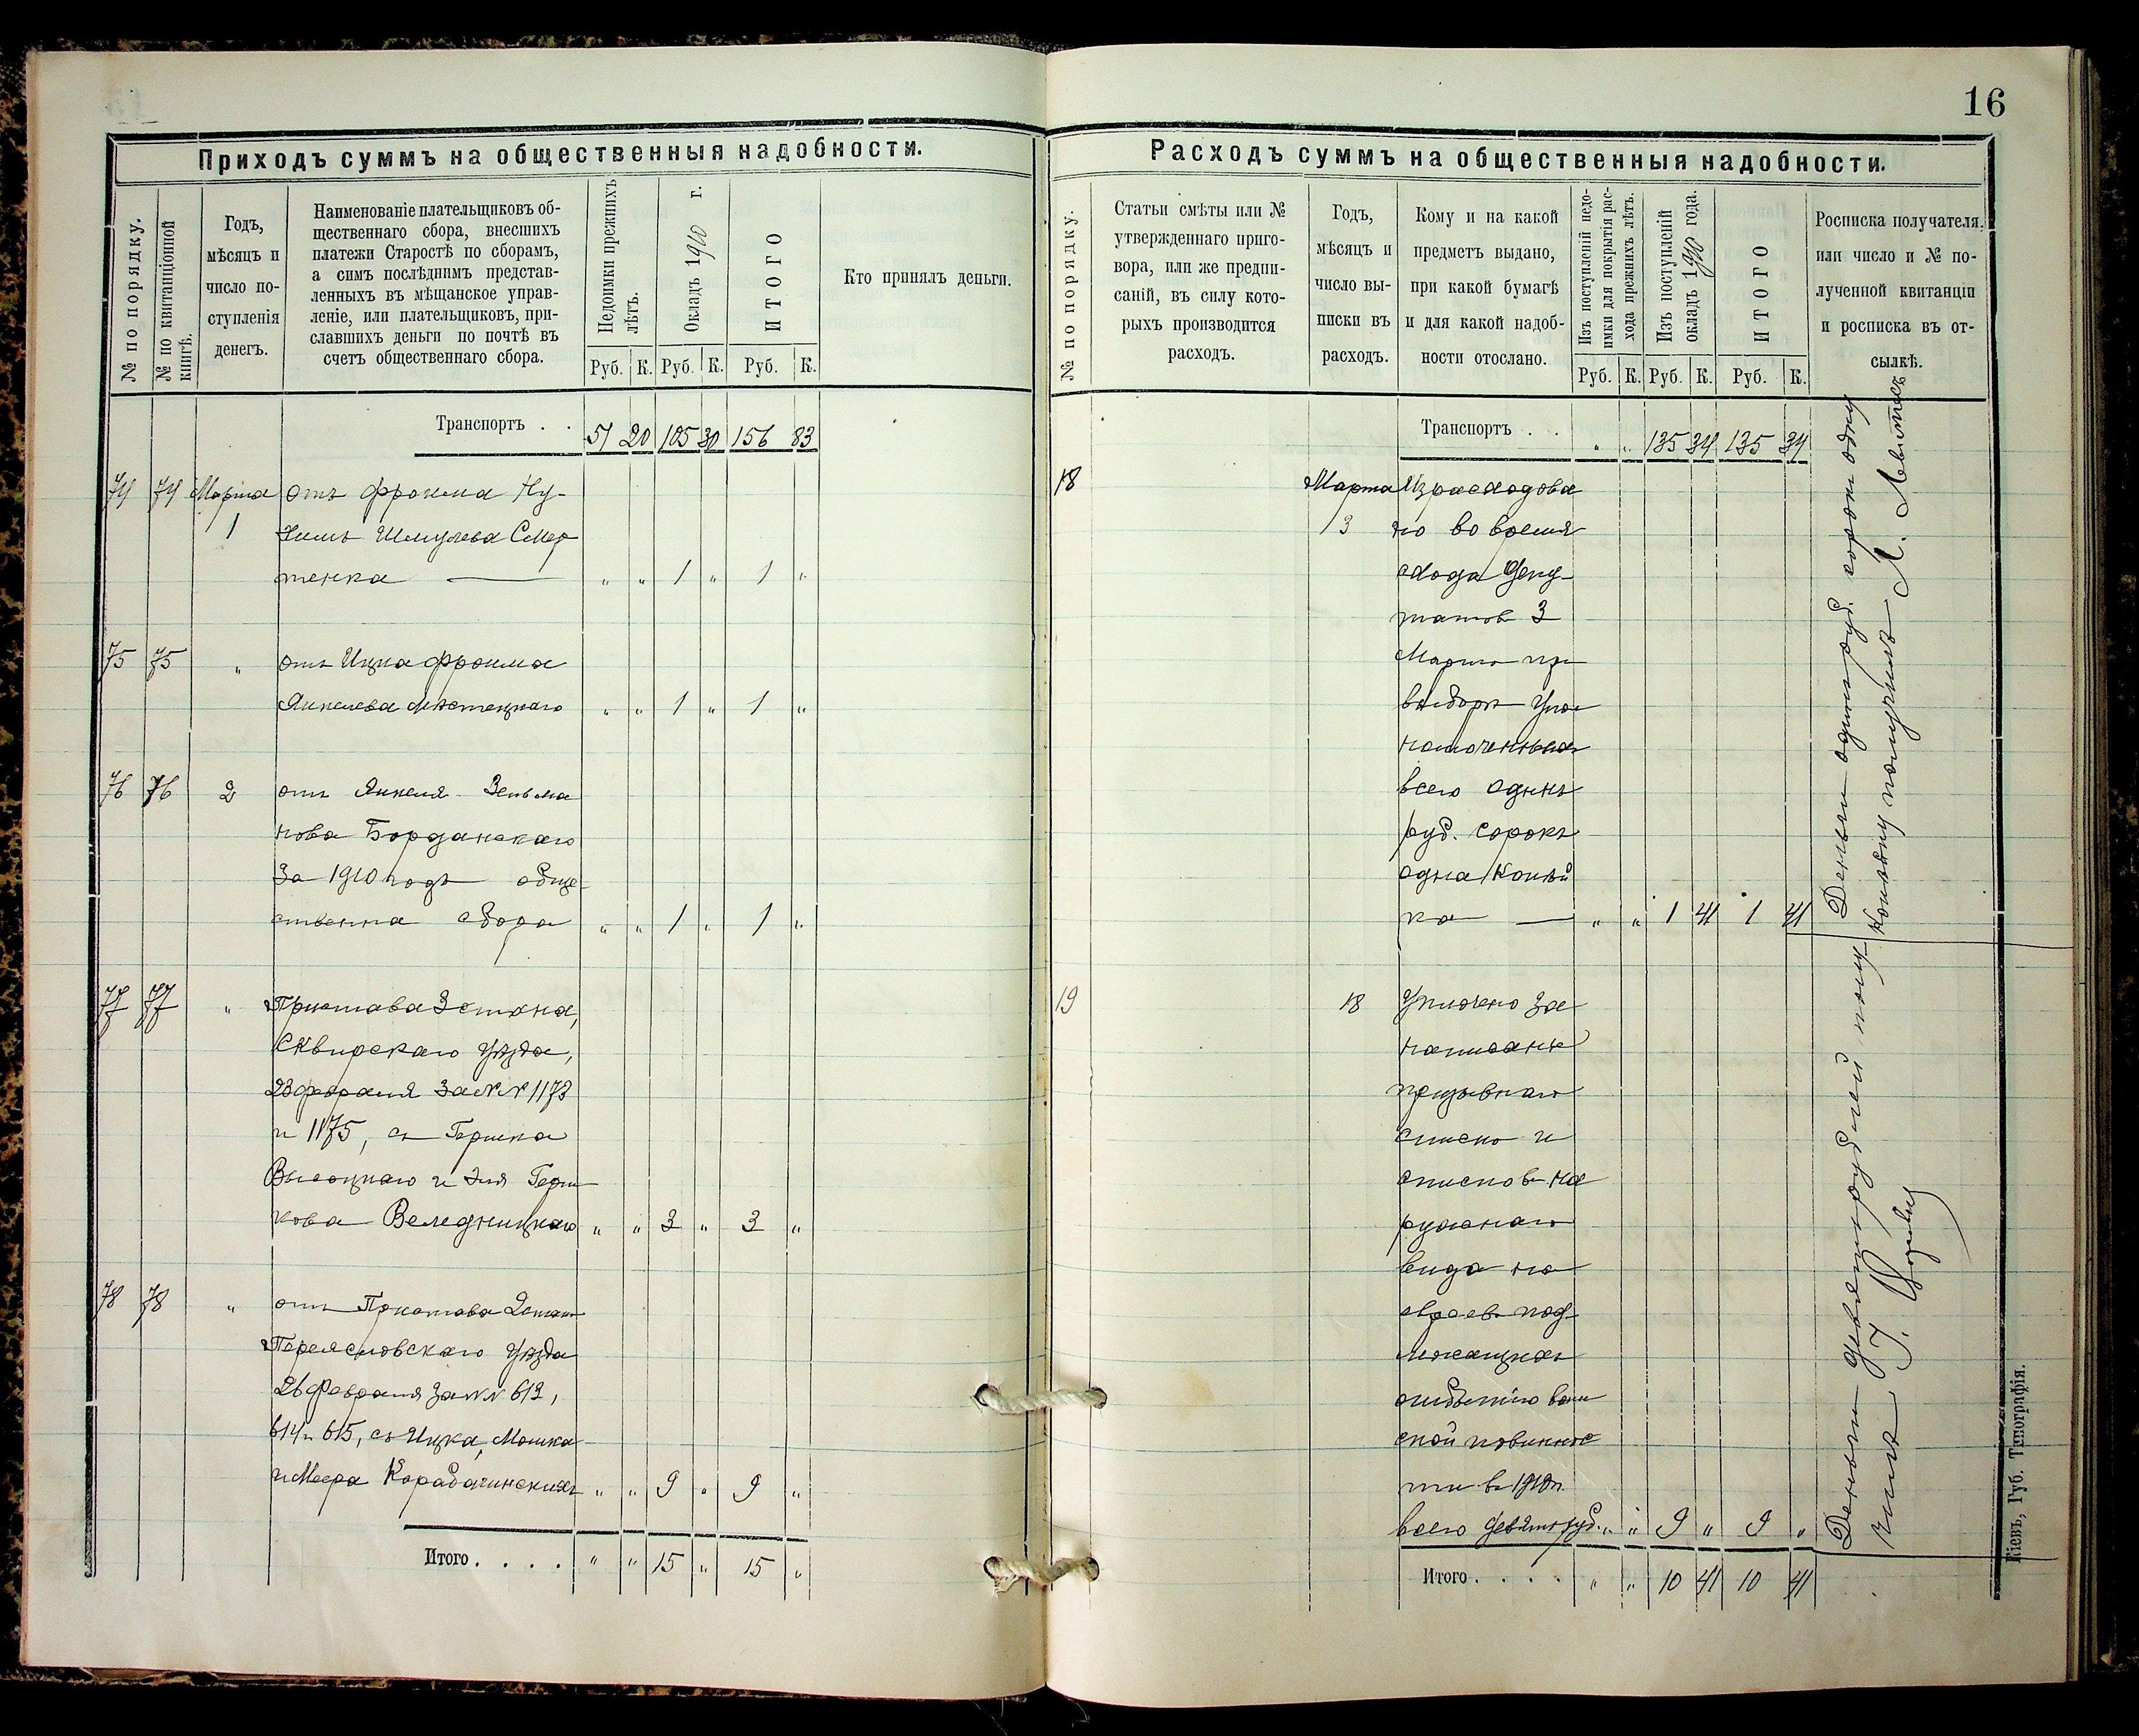 16
Приходъ суммъ на общественныя надобности.
№ по порядку.
№ по квитанціонной книгѣ.
Годъ,
мѣсяцъ и
число по-
ступленія
денегъ.
Наименованіе плательщиковъ об-
щественнаго сбора, внесшихъ
платежи Старостѣ по сборамъ,
а симъ послѣднимъ представ-
ленныхъ въ мѣщанское управ-
леніе, или плательщиковъ, при-
славшихъ деньги по почтѣ въ
счетъ общественнаго сбора.
Недоимки прежнихъ
лѣтъ.
Окладъ 1910 г.
ИТОГО
Кто принялъ деньги.
Руб. К. Руб. К. Руб. К.
Транспортъ . . 51 20 105 30 156 83
74 74 Марта отъ Фроима Ну-
1 Шмулева Смер
тенка — " " 1 " 1 "
75 75 " отъ Ицка Фроима
Янкелева Мястецкаго " " 1 " 1 "
76 76 2 отъ Янкеля Зельма
нова Борданскаго
За 1910 годъ обще-
ственна сбора " " 1 " 1 "
77 77 " Пристава 3 стана,
Сквирскаго Уѣзда,
23 февраля за №№ 1173
и 1175, съ Гершка
Высоцкаго и Эля Герш
кова Веледницкаго " " 3 " 3 "
78 78 " отъ Пристава 2 стана
Переясловскаго Уѣзда
26 Февраля за №№ 613,
614 и 615, съ Ицка, Мошка
и Меера Карабачинскихъ " " 9 " 9 "
Итого . . . . " " 15 " 15 "
Расходъ суммъ на общественныя надобности.
№ по порядку.
Статьи смѣты или №
утвержденнаго приго-
вора, или же предпи-
саній, въ силу кото-
рыхъ производится
расходъ.
Годъ,
мѣсяцъ и
число вы-
писки въ
расходъ.
Кому и на какой
предметъ выдано,
при какой бумагѣ
и для какой надоб-
ности отослано.
Изъ поступленій недо-
имки для покрытія рас-
хода прежнихъ лѣтъ.
Изъ поступленій
окладъ 1910 года.
ИТОГО
Росписка получателя
или число и № по-
лученной квитанціи
и росписка въ от-
сылкѣ.
Руб. К. Руб. К. Руб. К.
Транспортъ . . " " 135 34 135 34
18 Марта Израсходова
13 но во время
схода Депу-
татовъ 3
Марта при
выборѣ Упол
номоченныхъ
всего одинъ
руб. сорокъ
одна копѣй
ка — " " 1 41 1 41
Деньги одинъ руб. сорокъ одну
копѣйку получилъ Л. Левитас
19 18 Уплочено за
написаніе
призывнаго
списка и
списковъ на
ружнаго
вида на
евреевъ под-
лежащихъ
отбытію воин
ской повиннос
ти въ 1910 г.
всего девять руб. " " 9 " 9 "
Деньги девять рублей полу-
чилъ
Итого . . . . " " 10 41 10 41
Кіевъ, Губ. Типографія.